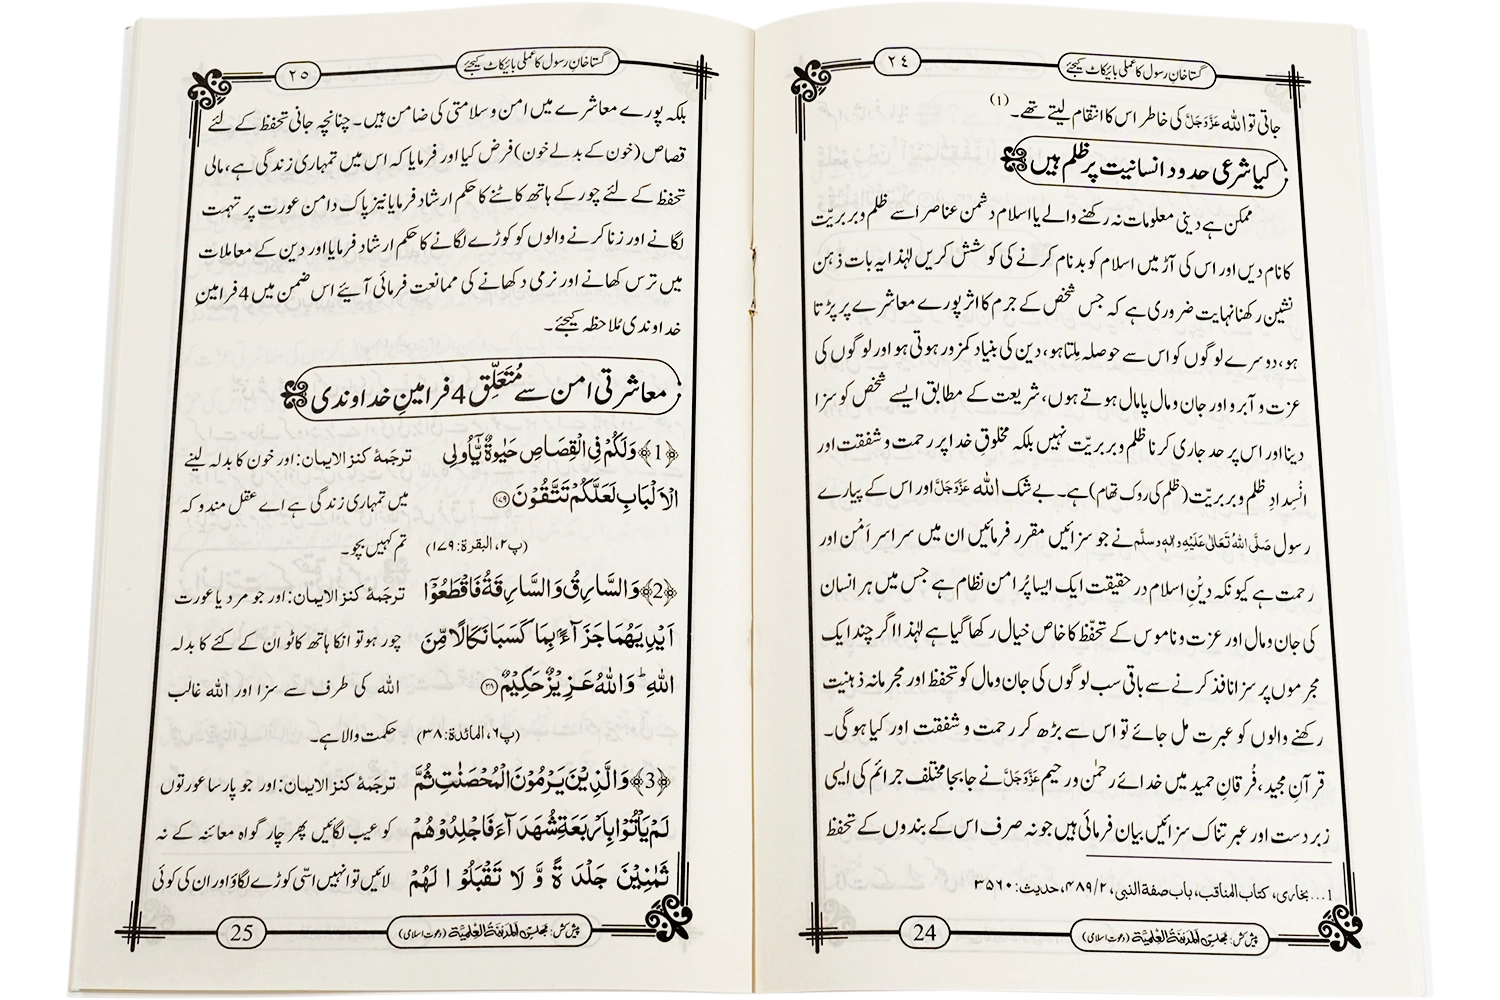 گستاخانِ رسول کا عملی بائیکاٹ کیجئے
٢٤
جاتی تو اللہ عَزَّوَجَلَّ کی خاطر اس کا انتقام لیتے تھے۔(1)
کیا شرعی حدود انسانیت پر ظلم ہیں
ممکن ہے دینی معلومات نہ رکھنے والے یا اسلام دشمن عناصر اسے ظلم و بربریّت
کا نام دیں اور اس کی آڑ میں اسلام کو بدنام کرنے کی کوشش کریں لہٰذا یہ بات ذہن
نشین رکھنا نہایت ضروری ہے کہ جس شخص کے جرم کا اثر پورے معاشرے پر پڑتا
ہو، دوسرے لوگوں کو اس سے حوصلہ مِلتا ہو، دین کی بنیاد کمزور ہوتی ہو اور لوگوں کی
عزت و آبرو اور جان و مال پامال ہوتے ہوں، شریعت کے مطابق ایسے شخص کو سزا
دینا اور اس پر حد جاری کرنا ظلم و بربریّت نہیں بلکہ مخلوقِ خدا پر رحمت و شفقت اور
اِنْسِدادِ ظلم و بربریّت (ظلم کی روک تھام) ہے۔ بے شک اللہ عَزَّوَجَلَّ اور اس کے پیارے
رسول صَلَّی اللہُ تَعَالٰی عَلَیْہِ وَاٰلِہٖ وَسَلَّم نے جو سزائیں مقرر فرمائیں ان میں سراسر اَمْن اور
رحمت ہے کیونکہ دینِ اسلام در حقیقت ایک ایسا پُر امن نظام ہے جس میں ہر انسان
کی جان و مال اور عزت و ناموس کے تحفّظ کا خاص خیال رکھا گیا ہے لہٰذا اگر چند ایک
مجرموں پر سزا نافذ کرنے سے باقی سب لوگوں کی جان و مال کو تحفظ اور مجرمانہ ذہنیت
رکھنے والوں کو عبرت مل جائے تو اس سے بڑھ کر رحمت و شفقت اور کیا ہوگی۔
قرآنِ مجید، فُرقانِ حمید میں خدائے رحمٰن و رحیم عَزَّوَجَلَّ نے جابجا مختلف جرائم کی ایسی
زبردست اور عبرتناک سزائیں بیان فرمائی ہیں جو نہ صرف اس کے بندوں کے تحفظ
1... بخاری، کتاب المناقب، باب صفة النبی، ۴۸۹/۲، حدیث: ۳۵۶۰
پیش کش: مجلس اَلْمَدِیْنَةُ الْعِلْمِیَّة (دعوتِ اسلامی)
24
گستاخانِ رسول کا عملی بائیکاٹ کیجئے
٢٥
بلکہ پورے معاشرے میں امن و سلامتی کی ضامن ہیں۔ چنانچہ جانی تحفظ کے لئے
قصاص (خون کے بدلے خون) فرض کیا اور فرمایا کہ اس میں تمہاری زندگی ہے، مالی
تحفظ کے لئے چور کے ہاتھ کاٹنے کا حکم ارشاد فرمایا نیز پاک دامن عورت پر تہمت
لگانے اور زنا کرنے والوں کو کوڑے لگانے کا حکم ارشاد فرمایا اور دین کے معاملات
میں ترس کھانے اور نرمی دکھانے کی ممانعت فرمائی آئیے اس ضمن میں 4 فرامینِ
خداوندی مُلاحظہ کیجئے۔
معاشرتی امن سے مُتَعَلِّق 4 فرامینِ خداوندی
﴿1﴾ وَلَكُمْ فِی الْقِصَاصِ حَیٰوةٌ یّٰۤاُولِی
الْاَلْبَابِ لَعَلَّكُمْ تَتَّقُوْنَ ﴿۱۷۹﴾
(پ۲، البقرة: ۱۷۹)
ترجَمۂ کنز الایمان: اور خون کا بدلہ لینے
میں تمہاری زندگی ہے اے عقل مندو کہ
تم کہیں بچو۔
﴿2﴾ وَالسَّارِقُ وَالسَّارِقَةُ فَاقْطَعُوْۤا
اَیْدِیَهُمَا جَزَآءًۢ بِمَا كَسَبَا نَكَالًا مِّنَ
اللّٰهِؕ وَاللّٰهُ عَزِیْزٌ حَكِیْمٌ ﴿۳۸﴾
(پ۶، المائدة: ۳۸)
ترجَمۂ کنز الایمان: اور جو مرد یا عورت
چور ہو تو انکا ہاتھ کاٹو ان کے کئے کا بدلہ
اللہ کی طرف سے سزا اور اللہ غالب
حکمت والا ہے۔
﴿3﴾ وَالَّذِیْنَ یَرْمُوْنَ الْمُحْصَنٰتِ ثُمَّ
لَمْ یَاْتُوْا بِاَرْبَعَةِ شُهَدَآءَ فَاجْلِدُوْهُمْ
ثَمٰنِیْنَ جَلْدَةً وَّ لَا تَقْبَلُوْا لَهُمْ
ترجَمۂ کنز الایمان: اور جو پارسا عورتوں
کو عیب لگائیں پھر چار گواہ معائنہ کے نہ
لائیں تو انہیں اسّی کوڑے لگاؤ اور ان کی کوئی
پیش کش: مجلس اَلْمَدِیْنَةُ الْعِلْمِیَّة (دعوتِ اسلامی)
25